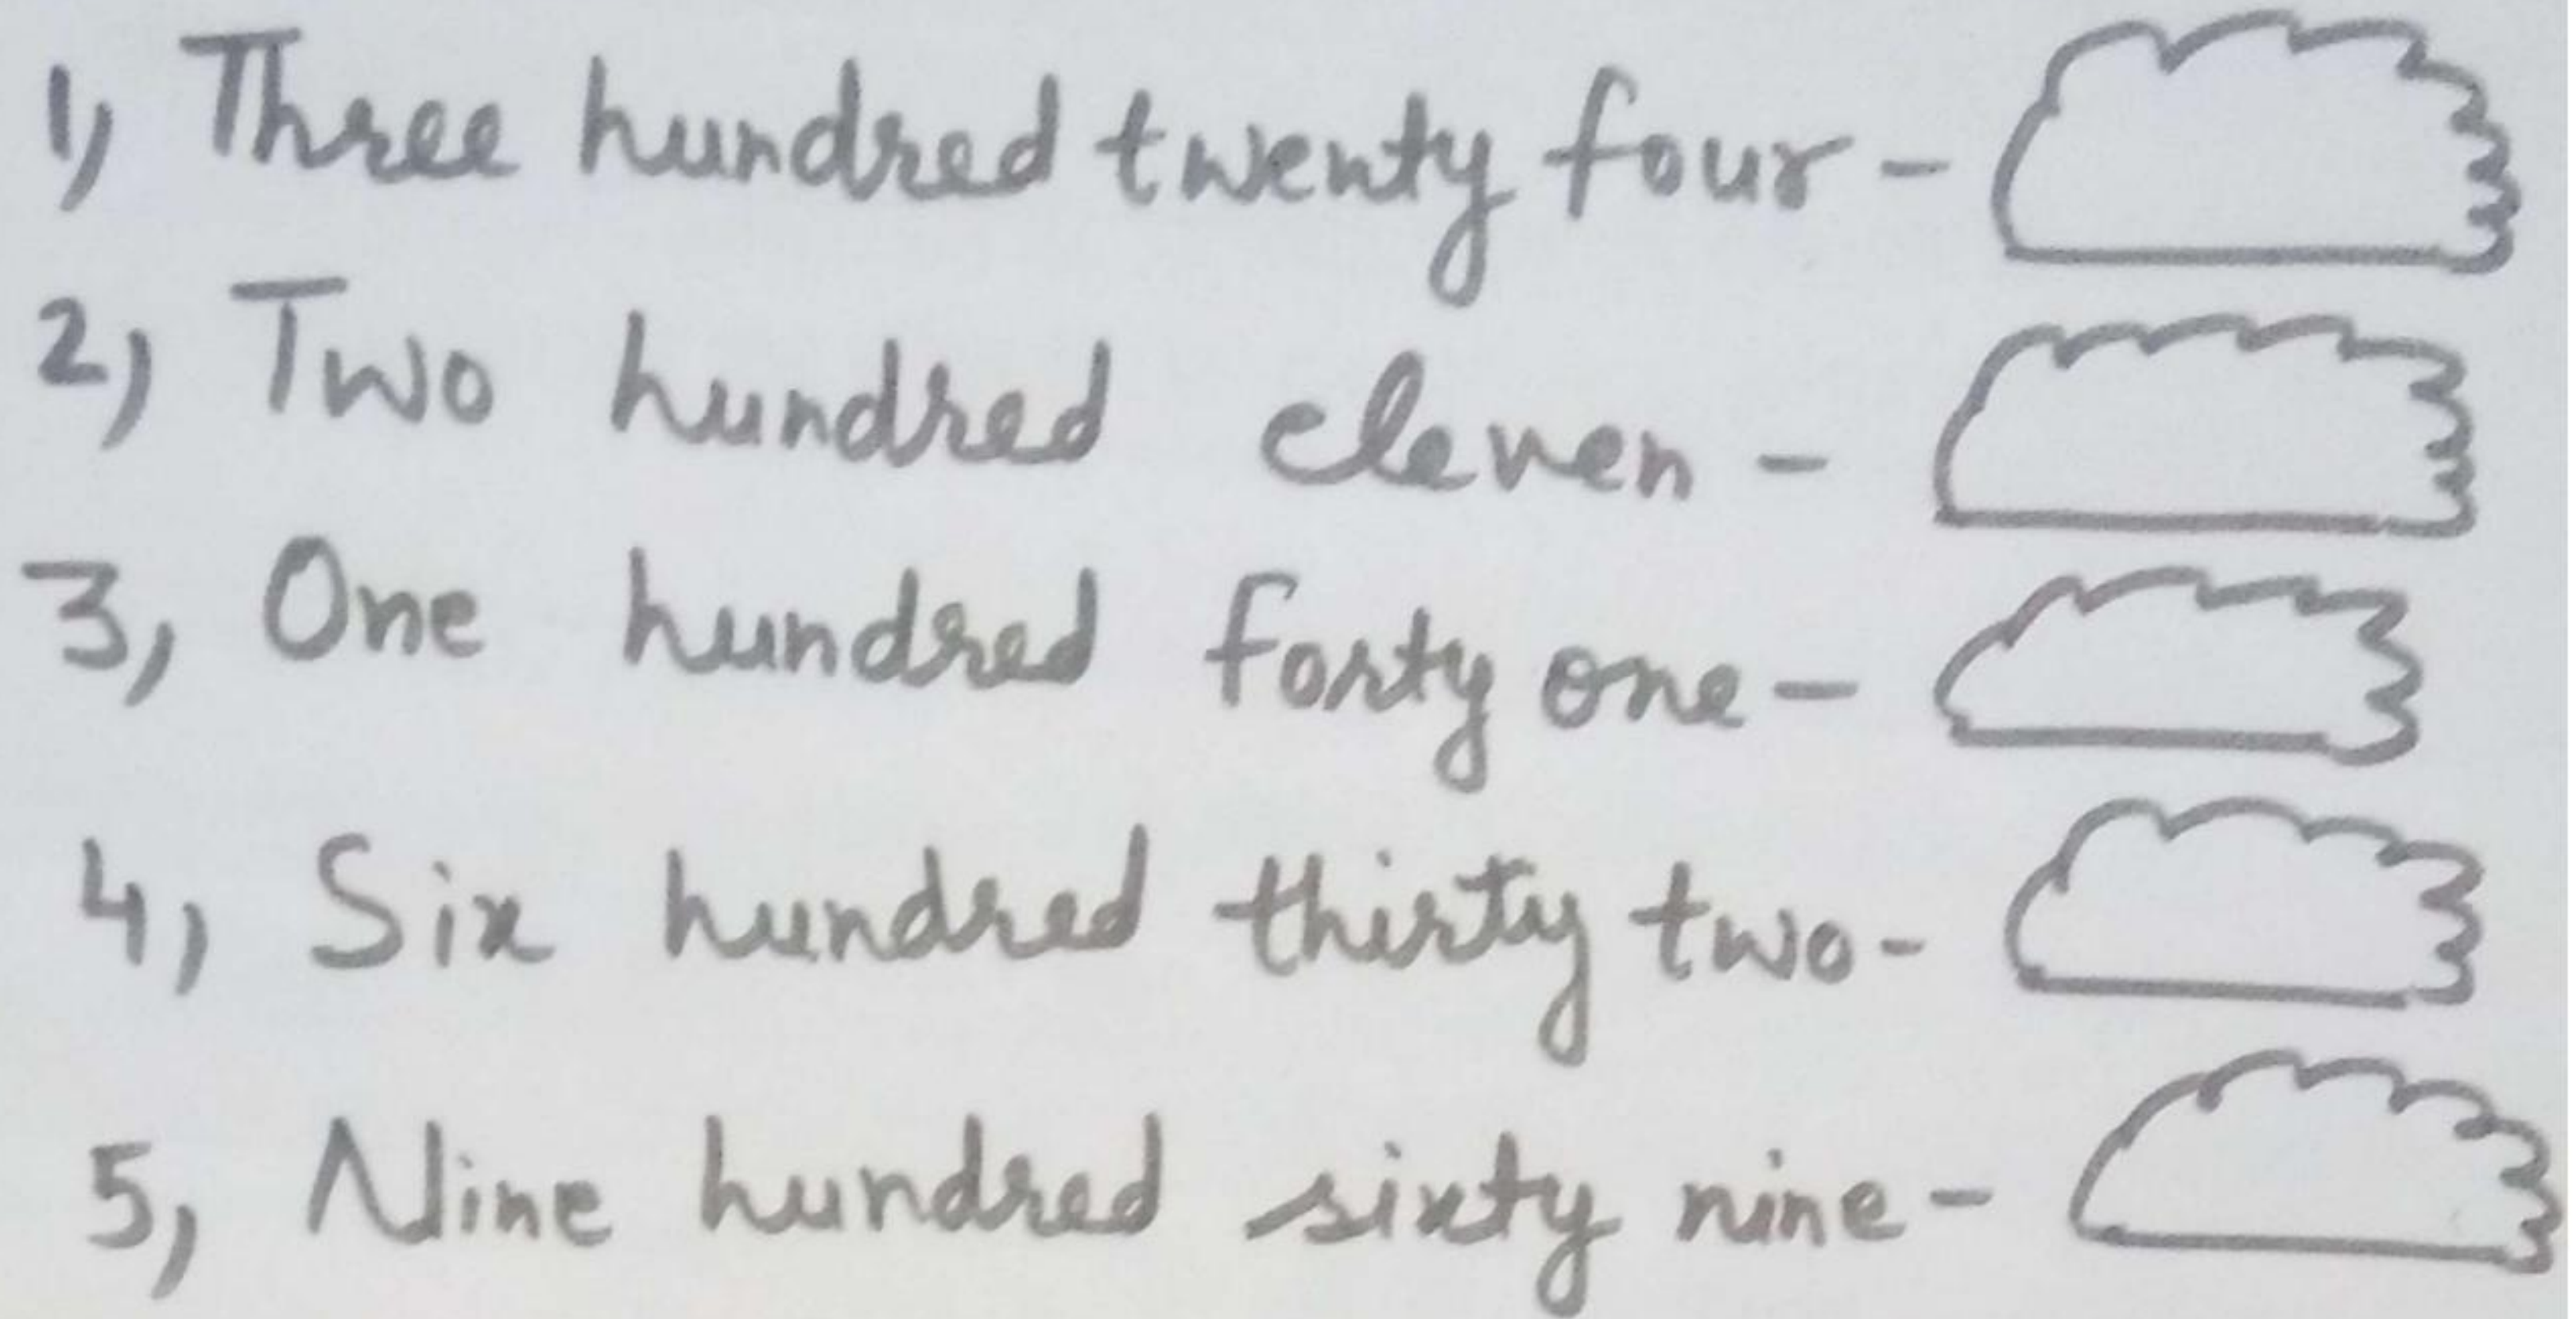 1, Three hundred twenty four -
2, Two hundred eleven -
3, One hundred forty one -
4, Six hundred thirty two -
5, Nine hundred sixty nine -